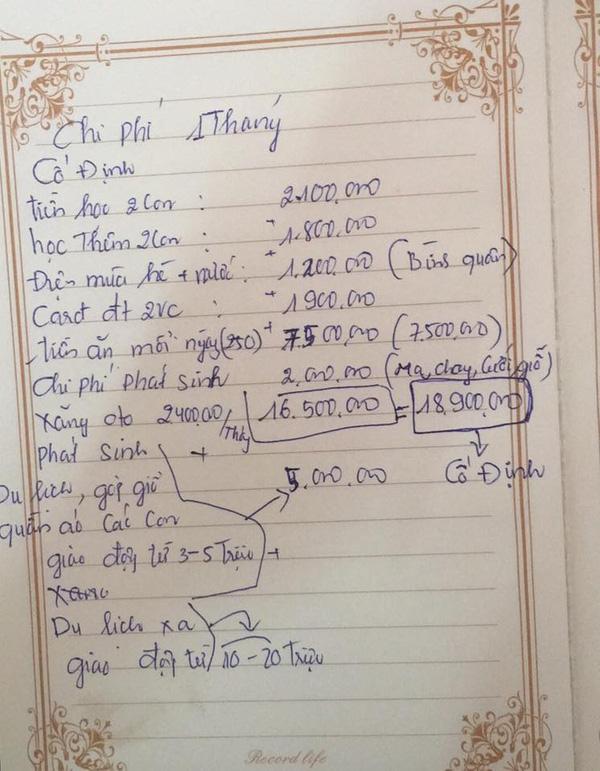 Chi phí 1 Tháng
Cố Định
tiền học 2 Con : 2.100.000
học Thêm 2 Con : + 1.800.000
Điện mùa hè + nước : + 1.200.000 (Bình quân)
Card đt 2VC : + 1 900.000
tiền ăn mỗi ngày (250) + 7.500.000 (7.500.000)
Chi phí phát sinh 2.000.000 (Ma, chay, Cưới, giỗ)
Xăng oto 2400.00/Thág 16.500.000 = 18.900.000
phát sinh + Cố Định
Du lịch, góp giỗ 5.000.000
quần áo Các Con
giao động từ 3-5 Triệu +
Du lịch xa
giao động từ 10-20 Triệu
Record life